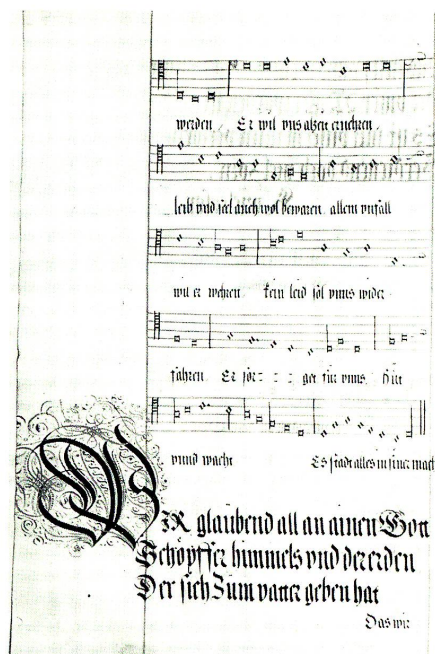 werden Er wil vns alzeit ernehren.
leib vnd seel auch wol bewaren. allem vnfall
wil er wehren kein leid sol vnns wider
fahren Er sor= = = get für vnns. hüt
vnnd wacht Es stadt alles in siner mact
WIR glaubend all an ainen Gott
Schöpffer himmels vnd der erden
Der sich Zum vatter geben hat
Das wir